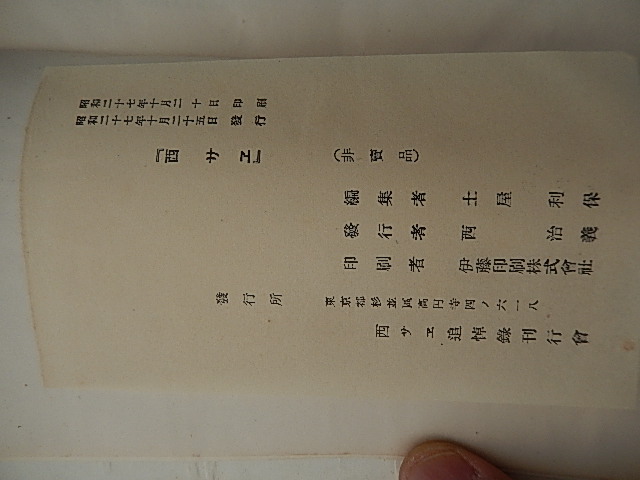 昭和二十七年十月二十日印刷
昭和二十七年十月二十五日發行
『西サヱ』 (非賣品)
編集者 土屋利保
發行者 西治義
印刷者 伊藤印刷株式會社
發行所 東京都杉並區高円寺四ノ六一八
西サヱ追悼錄刊行會